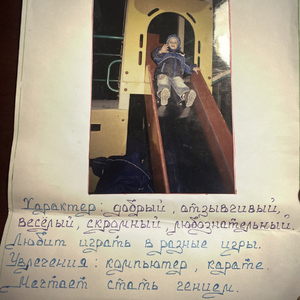 Характер: добрый, отзывчивый,
весёлый, скромный, любознательный.
Любит играть в разные игры.
Увлечения: компьютер, карате.
Мечтает стать гением.